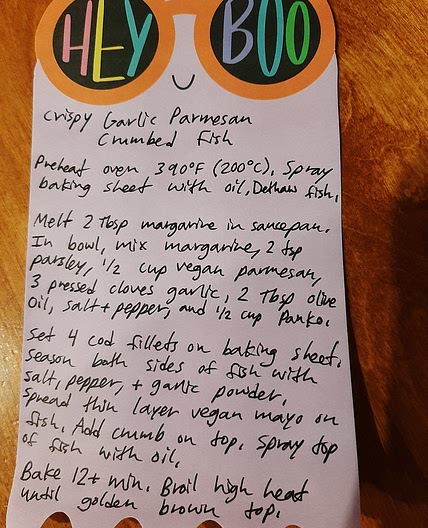 HEY BOO
Crispy Garlic Parmesan
Crumbed Fish
Preheat oven 390°F (200°C). Spray
baking sheet with oil, Dethaw fish.
Melt 2 Tbsp margarine in saucepan.
In bowl, mix margarine, 2 tsp
parsley, 1/2 cup vegan parmesan,
3 pressed cloves garlic, 2 Tbsp olive
oil, salt + pepper, and 1/2 cup Panko.
Set 4 cod fillets on baking sheet.
Season both sides of fish with
salt, pepper, + garlic powder.
Spread thin layer vegan mayo on
fish. Add crumb on top. Spray top
of fish with oil.
Bake 12+ min. Broil high heat
until golden brown top.